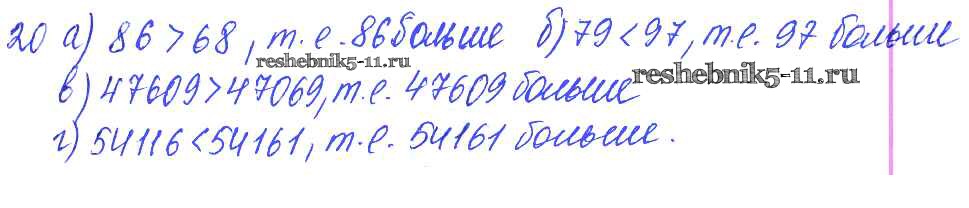 20 а) 86 > 68, т.е. 86 больше б) 79 < 97, т.е. 97 больше
reshebnik5-11.ru
reshebnik5-11.ru
в) 47609 > 47069, т.е. 47609 больше
г) 54116 < 54161, т.е. 54161 больше.